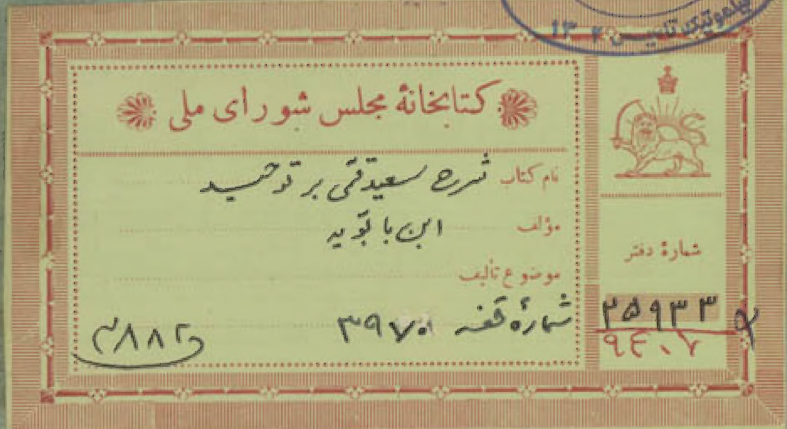 ۱۳۰۲
کتابخانهٔ مجلس شورای ملی
نام کتاب شرح سعید قمی بر توحید
مؤلف ابن بابویه
موضوع تألیف
شمارهٔ قفسه ۳۹۷۰
شمارهٔ دفتر
۲۵۹۳۳
۹۴۰۷